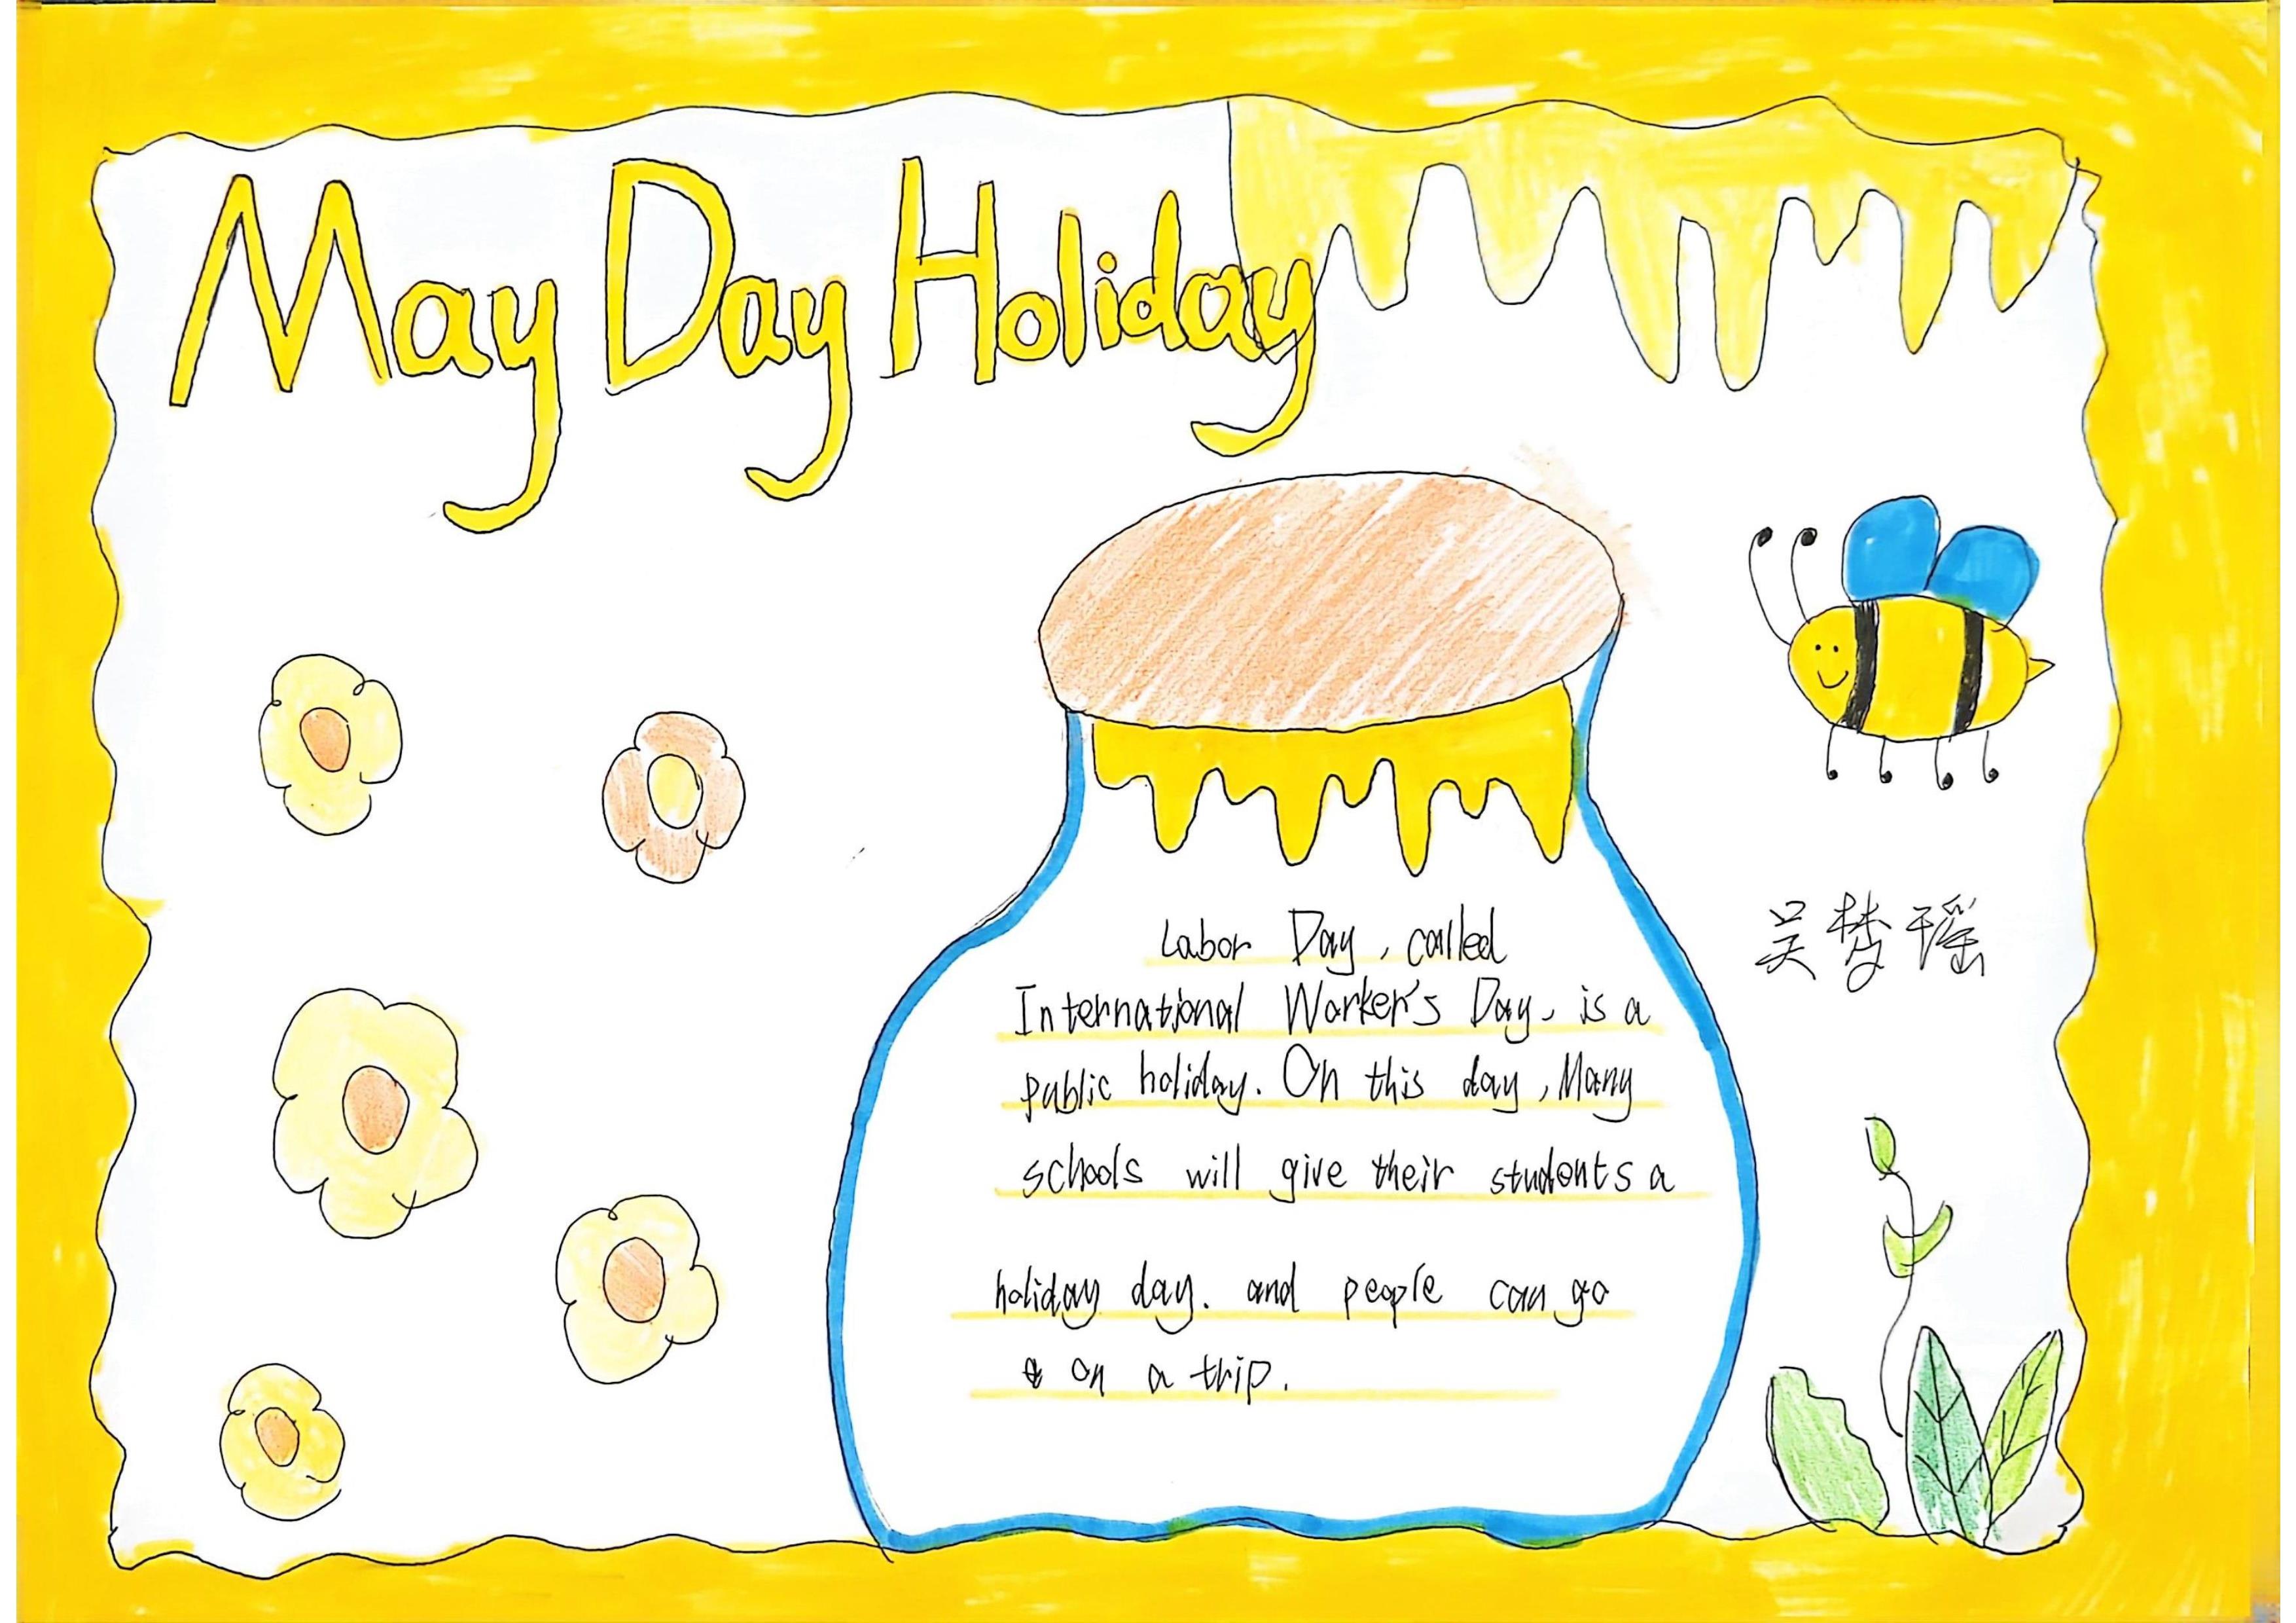 May Day Holiday
Labor Day, called
International Worker's Day, is a
public holiday. On this day, Many
schools will give their students a
holiday day. and people can go
on a trip.
吴梦瑶